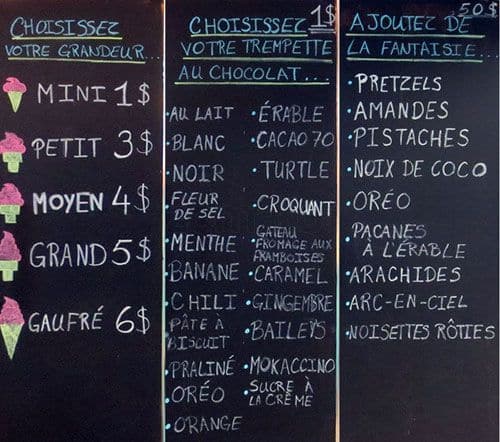 CHOISISSEZ
VOTRE GRANDEUR...
MINI 1$
PETIT 3$
MOYEN 4$
GRAND 5$
GAUFRÉ 6$
CHOISISSEZ 1$
VOTRE TREMPETTE
AU CHOCOLAT...
•AU LAIT
•BLANC
•NOIR
•FLEUR
DE SEL
•MENTHE
•BANANE
•CHILI
•PÂTE À
BISCUIT
•PRALINÉ
•ORÉO
•ORANGE
•ÉRABLE
•CACAO 70
•TURTLE
•CROQUANT
•GATEAU
FROMAGE AUX
FRAMBOISES
•CARAMEL
•GINGEMBRE
•BAILEYS
•MOKACCINO
•SUCRE À
LA CRÈME
AJOUTEZ DE 50$
LA FANTAISIE...
•PRETZELS
•AMANDES
•PISTACHES
•NOIX DE COCO
•ORÉO
•PACANES
À L'ÉRABLE
•ARACHIDES
•ARC-EN-CIEL
•NOISETTES RÔTIES